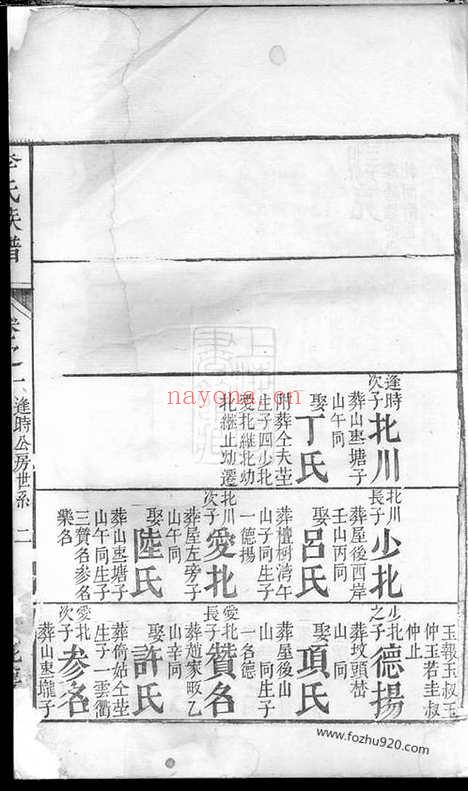 逢時
次子
北川
葬山惠塘子
山午同
娶
丁氏
附葬仝夫塋
生子四少北
愛北繼北幼
北繼止幼遷
北川
長子
少北
葬屋後西岸
壬山丙同
娶
呂氏
葬檀樹灣午
山子同生子
一德揚
北川
次子
愛北
葬屋左旁子
山午同
娶
陸氏
葬山惠塘子
山午同生子
三贊名參名
榮名
玉報玉叔玉
仲玉若圭叔
仲止
少北
之子
德揚
葬坟頭
山
娶
項氏
葬屋後山
山同生子
一名德
愛北
長子
贊名
葬趙家畈乙
山辛同
娶
許氏
葬倚姑仝塋
生子一雲衢
愛北
次子
參名
葬山惠壠子
氏族譜
卷之一
逢時公房世系
二
nayona.cn
www.fozhu920.com